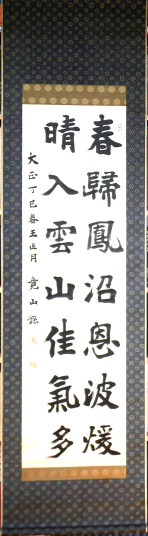 春歸鳳沼恩波煖
晴入雲山佳氣多
大正丁巳春王正月 竟山